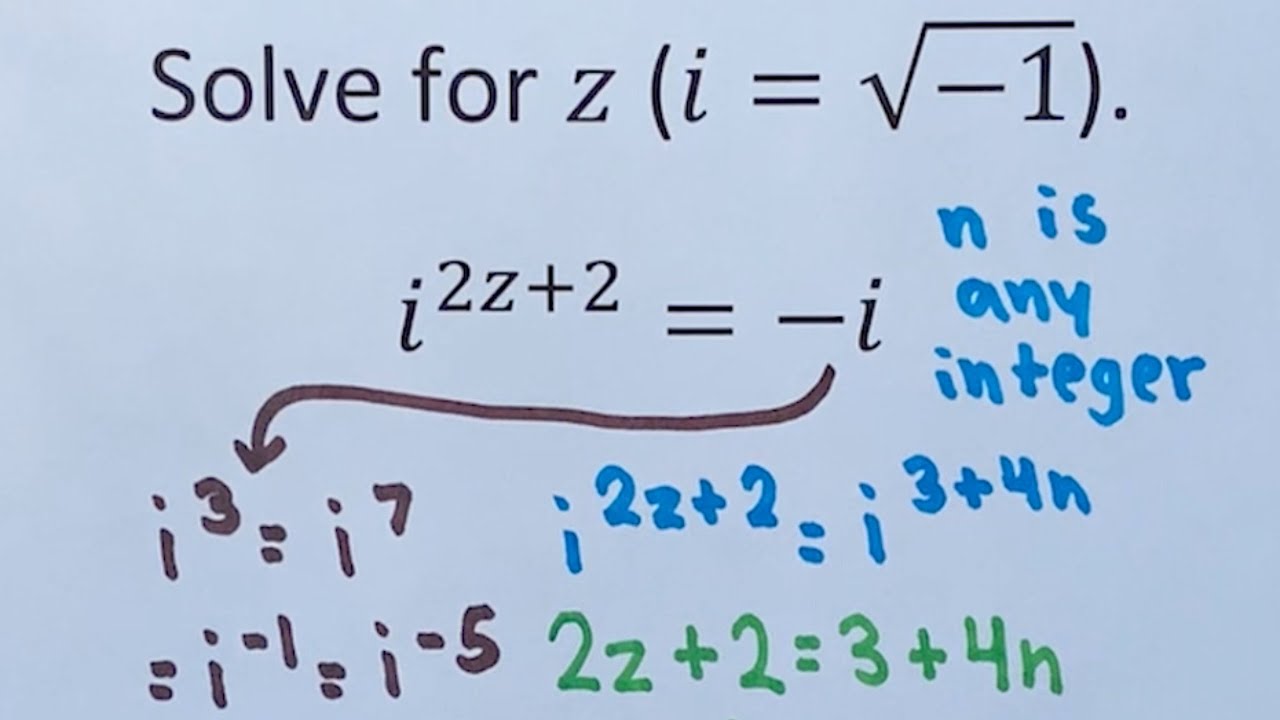 Solve for z (i = √−1).
i^{2z+2} = −i
n is
any
integer
i^3 = i^7
= i^{-1} = i^{-5}
i^{2z+2} = i^{3+4n}
2z+2=3+4n